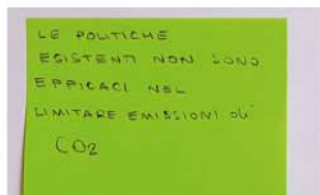 LE POLITICHE
ESISTENTI NON SONO
EFFICACI NEL
LIMITARE EMISSIONI di
CO2